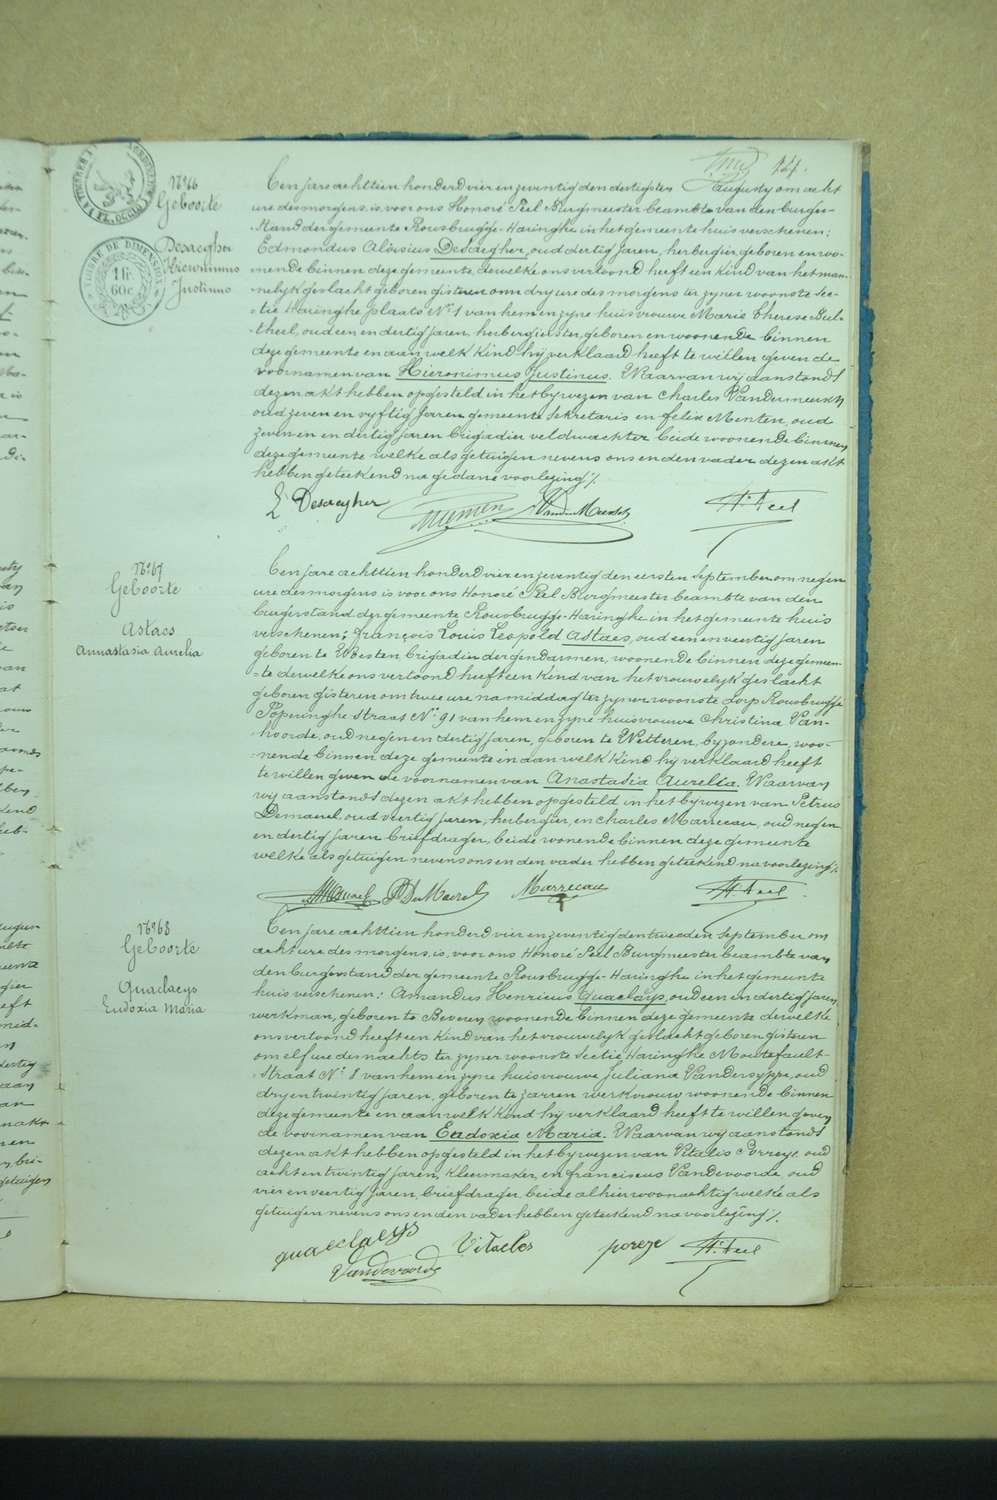 127.
N° 66
Geboorte
Desaegher
Hieronimus
Justinus
TIMBRE DE DIMENSION
16
60c
Een jare achttien honderd vier en zeventig den dertigsten Augusty om acht
ure des morgens, is, voor ons Honoré Peel Burgmeester beambte van den burger-
stand der gemeente Rousbrugge-Haringhe in het gemeente huis verschenen:
Edmondus Aloisius Desaegher, oud dertig jaren, herbergier, geboren en woo-
nende binnen deze gemeente, dewelke ons vertoond heeft een kind van het man-
nelyk geslacht geboren gisteren om dry ure des morgens ter zyner woonste sec-
tie Haringhe plaats N° 1 van hem en zyne huisvrouwe Marie Therese
oud een en dertig jaren, herbergierster, geboren en woonende binnen
deze gemeente en aan welk kind hy verklaard heeft te willen geven de
voornamen van Hieronimus Justinus. Waarvan wy aanstonds
dezen akt hebben opgesteld in het bywezen van Charles Vandermeersch
oud zeven en vyftig jaren gemeente sekretaris en Felix Menten, oud
zeven en dertig jaren brigadier veldwachter beide woonende binnen
deze gemeente welke als getuigen nevens ons en den vader dezen akt
hebben geteekend na gedane voorlezing /.
E Desaegher
H. Peel
N° 67
Geboorte
Astaes
Annastasia Aurelia
Een jare achttien honderd vier en zeventig den eersten september om negen
ure des morgens is voor ons Honoré Peel Burgmeester beambte van den
burgerstand der gemeente Rousbrugge-Haringhe in het gemeente huis
verschenen: François Louis Leopold Astaes, oud een en veertig jaren
geboren te Woesten, brigadier der gendarmen, woonende binnen deze gemeen-
te dewelke ons vertoond heeft een kind van het vrouwelyk geslacht
geboren gisteren om twee ure namiddag ter zyner woonste dorp Rousbrugge
Poperinghe straat N° 91 van hem en zyne huisvrouwe Christina Van-
hoorde, oud negen en dertig jaren, geboren te Wetteren, byzondere, woo-
nende binnen deze gemeente en aan welk kind hy verklaard heeft
te willen geven de voornamen van Anastasia Aurelia. Waarvan
wy aanstonds dezen akt hebben opgesteld in het bywezen van Petrus
Demaerel, oud veertig jaren, herbergier, en Charles Marrecau, oud negen
en dertig jaren briefdrager, beide woonende binnen deze gemeente
welke als getuigen nevens ons en den vader hebben geteekend na voorlezing /.
Marrecau
H. Peel
N° 68
Geboorte
Quaelaeys
Eudoxia Maria
Een jare achttien honderd vier en zeventig den tweeden september om
acht ure des morgens, is, voor ons Honoré Peel Burgmeester beambte van
den burgerstand der gemeente Rousbrugge-Haringhe in het gemeente
huis verschenen: Amandus Henricus Quaelaeys, oud een en dertig jaren,
werkman, geboren te Beveren, woonende binnen deze gemeente dewelke
ons vertoond heeft een kind van het vrouwelyk geslacht geboren gisteren
om elf ure des nachts ter zyner woonste sectie Haringhe
straat N° 8 van hem en zyne huisvrouwe Juliana Vandersyppe, oud
dry en twintig jaren, geboren te Zarren werkvrouw woonende binnen
deze gemeente en aan welk kind hy verklaard heeft te willen geven
de voornamen van Eudoxia Maria. Waarvan wy aanstonds
dezen akt hebben opgesteld in het bywezen van Vitalis Porreye oud
acht en twintig jaren, kleermaker, en Franciscus Vandevoorde oud
vier en veertig jaren, briefdrager, beide alhier woonachtig welke als
getuigen nevens ons en den vader hebben geteekend na voorlezing /.
quaeclaeys
Vandevoorde
H. Peel